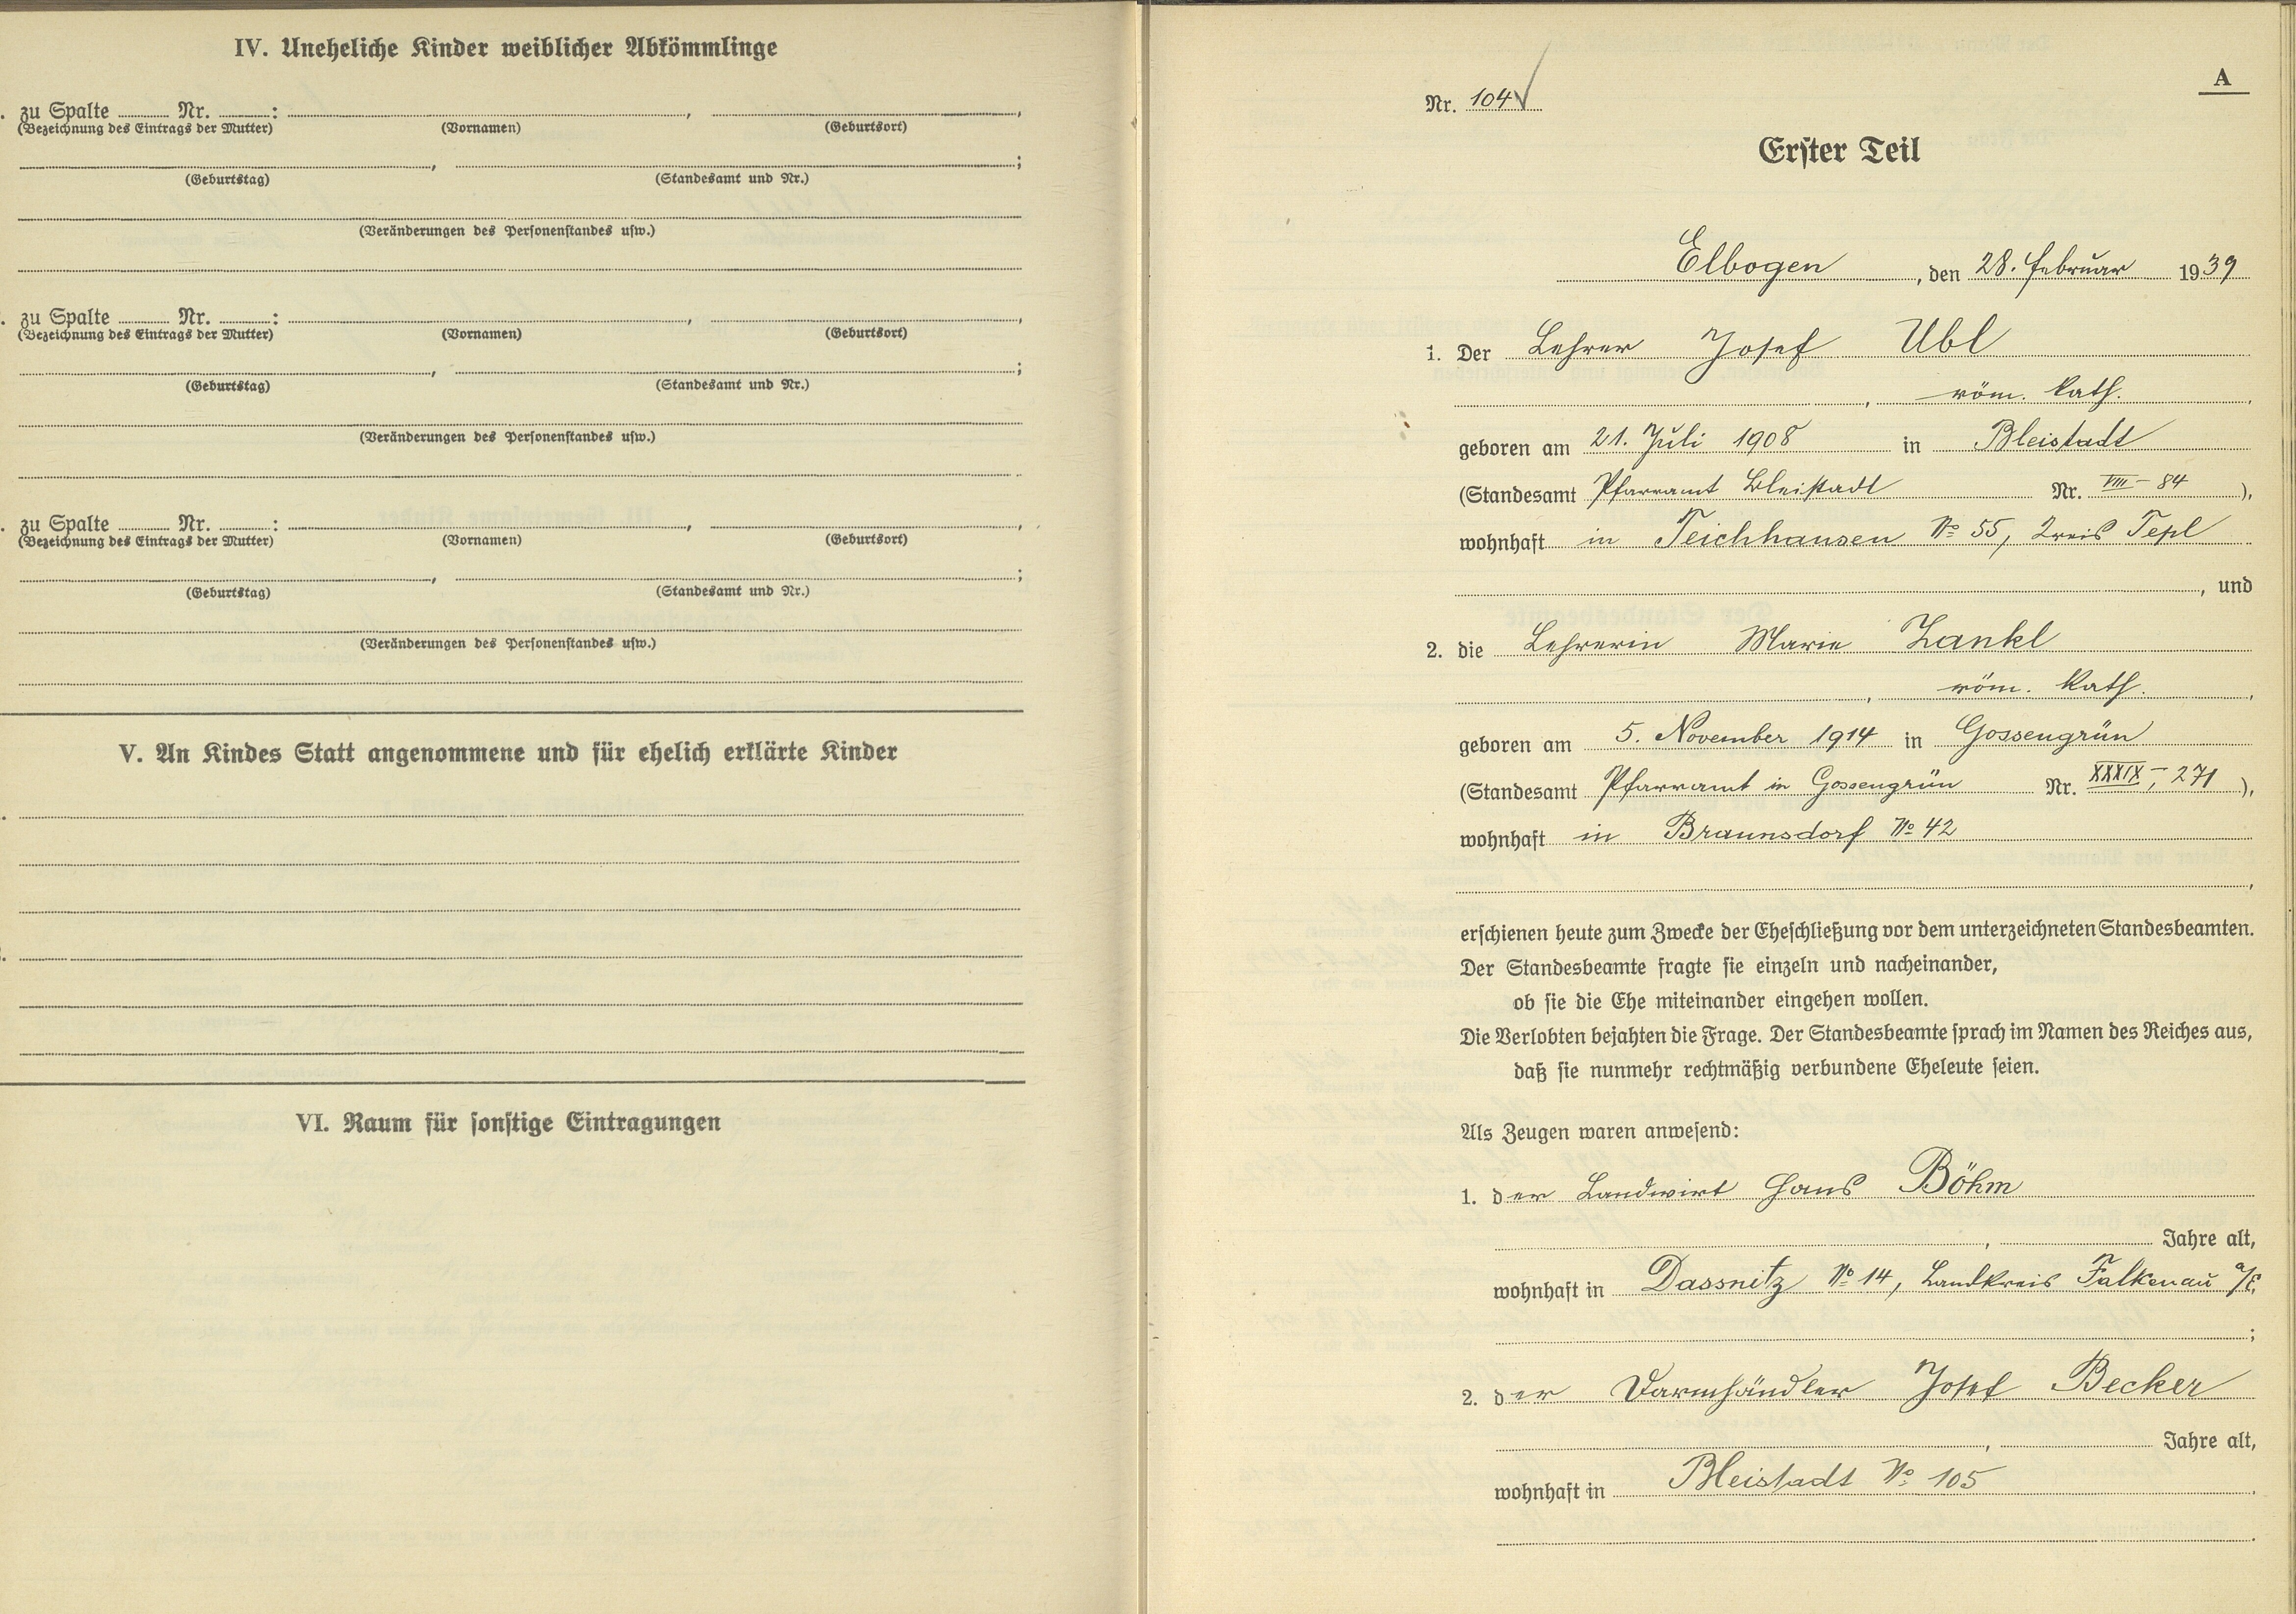 IV. Uneheliche Kinder weiblicher Abkömmlinge
. zu Spalte ........ Nr. ........: ........, ........,
(Bezeichnung des Eintrags der Mutter) (Vornamen) (Geburtsort)
........, ........;
(Geburtstag) (Standesamt und Nr.)
(Veränderungen des Personenstandes usw.)
. zu Spalte ........ Nr. ........: ........, ........,
(Bezeichnung des Eintrags der Mutter) (Vornamen) (Geburtsort)
........, ........;
(Geburtstag) (Standesamt und Nr.)
(Veränderungen des Personenstandes usw.)
. zu Spalte ........ Nr. ........: ........, ........,
(Bezeichnung des Eintrags der Mutter) (Vornamen) (Geburtsort)
........, ........;
(Geburtstag) (Standesamt und Nr.)
(Veränderungen des Personenstandes usw.)
V. An Kindes Statt angenommene und für ehelich erklärte Kinder
VI. Raum für sonstige Eintragungen
A
Nr. 104
Erster Teil
Elbogen, den 28. Februar 1939
1. Der Lehrer Josef Ubl
, röm. kath.,
geboren am 21. Juli 1908 in Bleistadt
(Standesamt Pfarramt Bleistadt Nr. VIII - 84),
wohnhaft in Teichhausen No 55, Kreis Tepl
, und
2. die Lehrerin Marie Zankl
, röm. kath.,
geboren am 5. November 1914 in Gossengrün
(Standesamt Pfarramt in Gossengrün Nr. XXXIX -, 271),
wohnhaft in Braunsdorf No 42
,
erschienen heute zum Zwecke der Eheschließung vor dem unterzeichneten Standesbeamten.
Der Standesbeamte fragte sie einzeln und nacheinander,
ob sie die Ehe miteinander eingehen wollen.
Die Verlobten bejahten die Frage. Der Standesbeamte sprach im Namen des Reiches aus,
daß sie nunmehr rechtmäßig verbundene Eheleute seien.
Als Zeugen waren anwesend:
1. der Landwirt Hans Böhm
, ........ Jahre alt,
wohnhaft in Dassnitz No 14, Landkreis Falkenau a/E.
;
2. der Darmhändler Josef Becker
, ........ Jahre alt,
wohnhaft in Bleistadt No 105
.